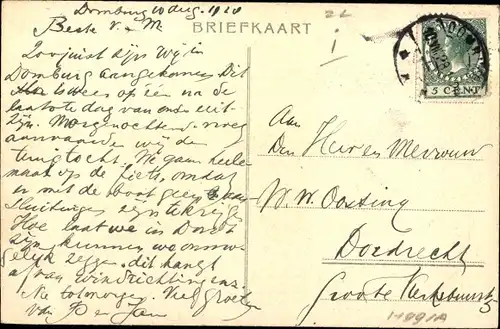 Domburg 10 Aug. 1928
BRIEFKAART
Beste V. & M.
Zoo juist zijn wij in
Domburg aangekomen. Dit
is op één na de
laatste dag van ons uit
zijn. Morgenochtend vroeg
aanvaarden wij de
terugtocht. Wij gaan heele-
maal op de fiets, omdat
er met de boot geen aan-
sluitingen zijn te krijgen.
Hoe laat we in Dordt
zijn kunnen we onmo-
gelijk zeggen. dit hangt
af van windrichting enz.
Nu tot morgen. Veel groeten
van P en Jan
5 CENT
Aan
Den Heer en Mevrouw
W. W. Oosting
Dordrecht
Groote Kerksbuurt
H991A